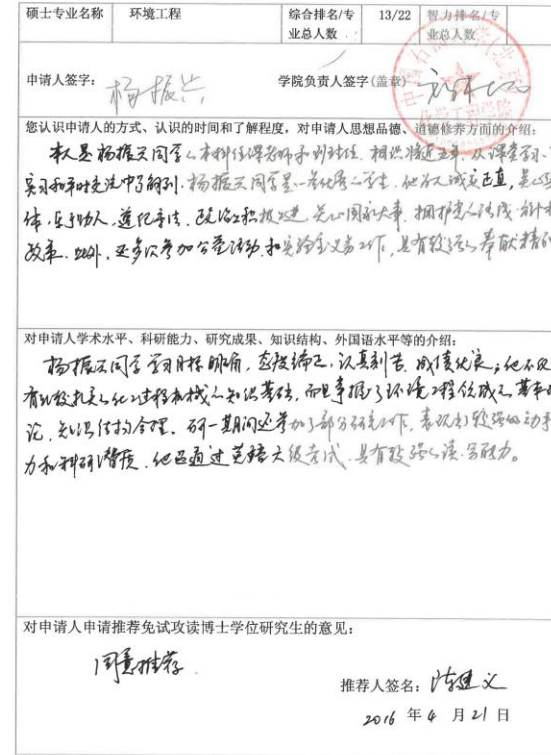 硕士专业名称 环境工程 综合排名/专业总人数 13/22 智力排名/专业总人数
申请人签字: 杨振兴 学院负责人签字(盖章)
您认识申请人的方式、认识的时间和了解程度,对申请人思想品德、道德修养方面的介绍:
本人是杨振兴同学的本科任课教师和班主任,相识将近五年,从课堂学习、
实习和平时交流中了解到,杨振兴同学是一名优秀的学生,他为人诚实正直,关心集
体,乐于助人,遵纪守法,政治上积极上进,关心国家大事,拥护党的路线、方针和
政策。此外,还多次参加公益活动和实验室义务工作,具有较强的奉献精
对申请人学术水平、科研能力、研究成果、知识结构、外国语水平等的介绍:
杨振兴同学学习目标明确,态度端正,认真刻苦,成绩优良;他不仅
有比较扎实的化工过程机械的知识基础,而且掌握了环境工程领域的基本
论,知识结构合理。研一期间还参加了部分研究工作,表现出了较强的动手
力和科研潜质,他已通过英语六级考试,具有较强的读、写能力。
对申请人申请推荐免试攻读博士学位研究生的意见:
同意推荐
推荐人签名: 陈建义
2016 年 4 月 21 日